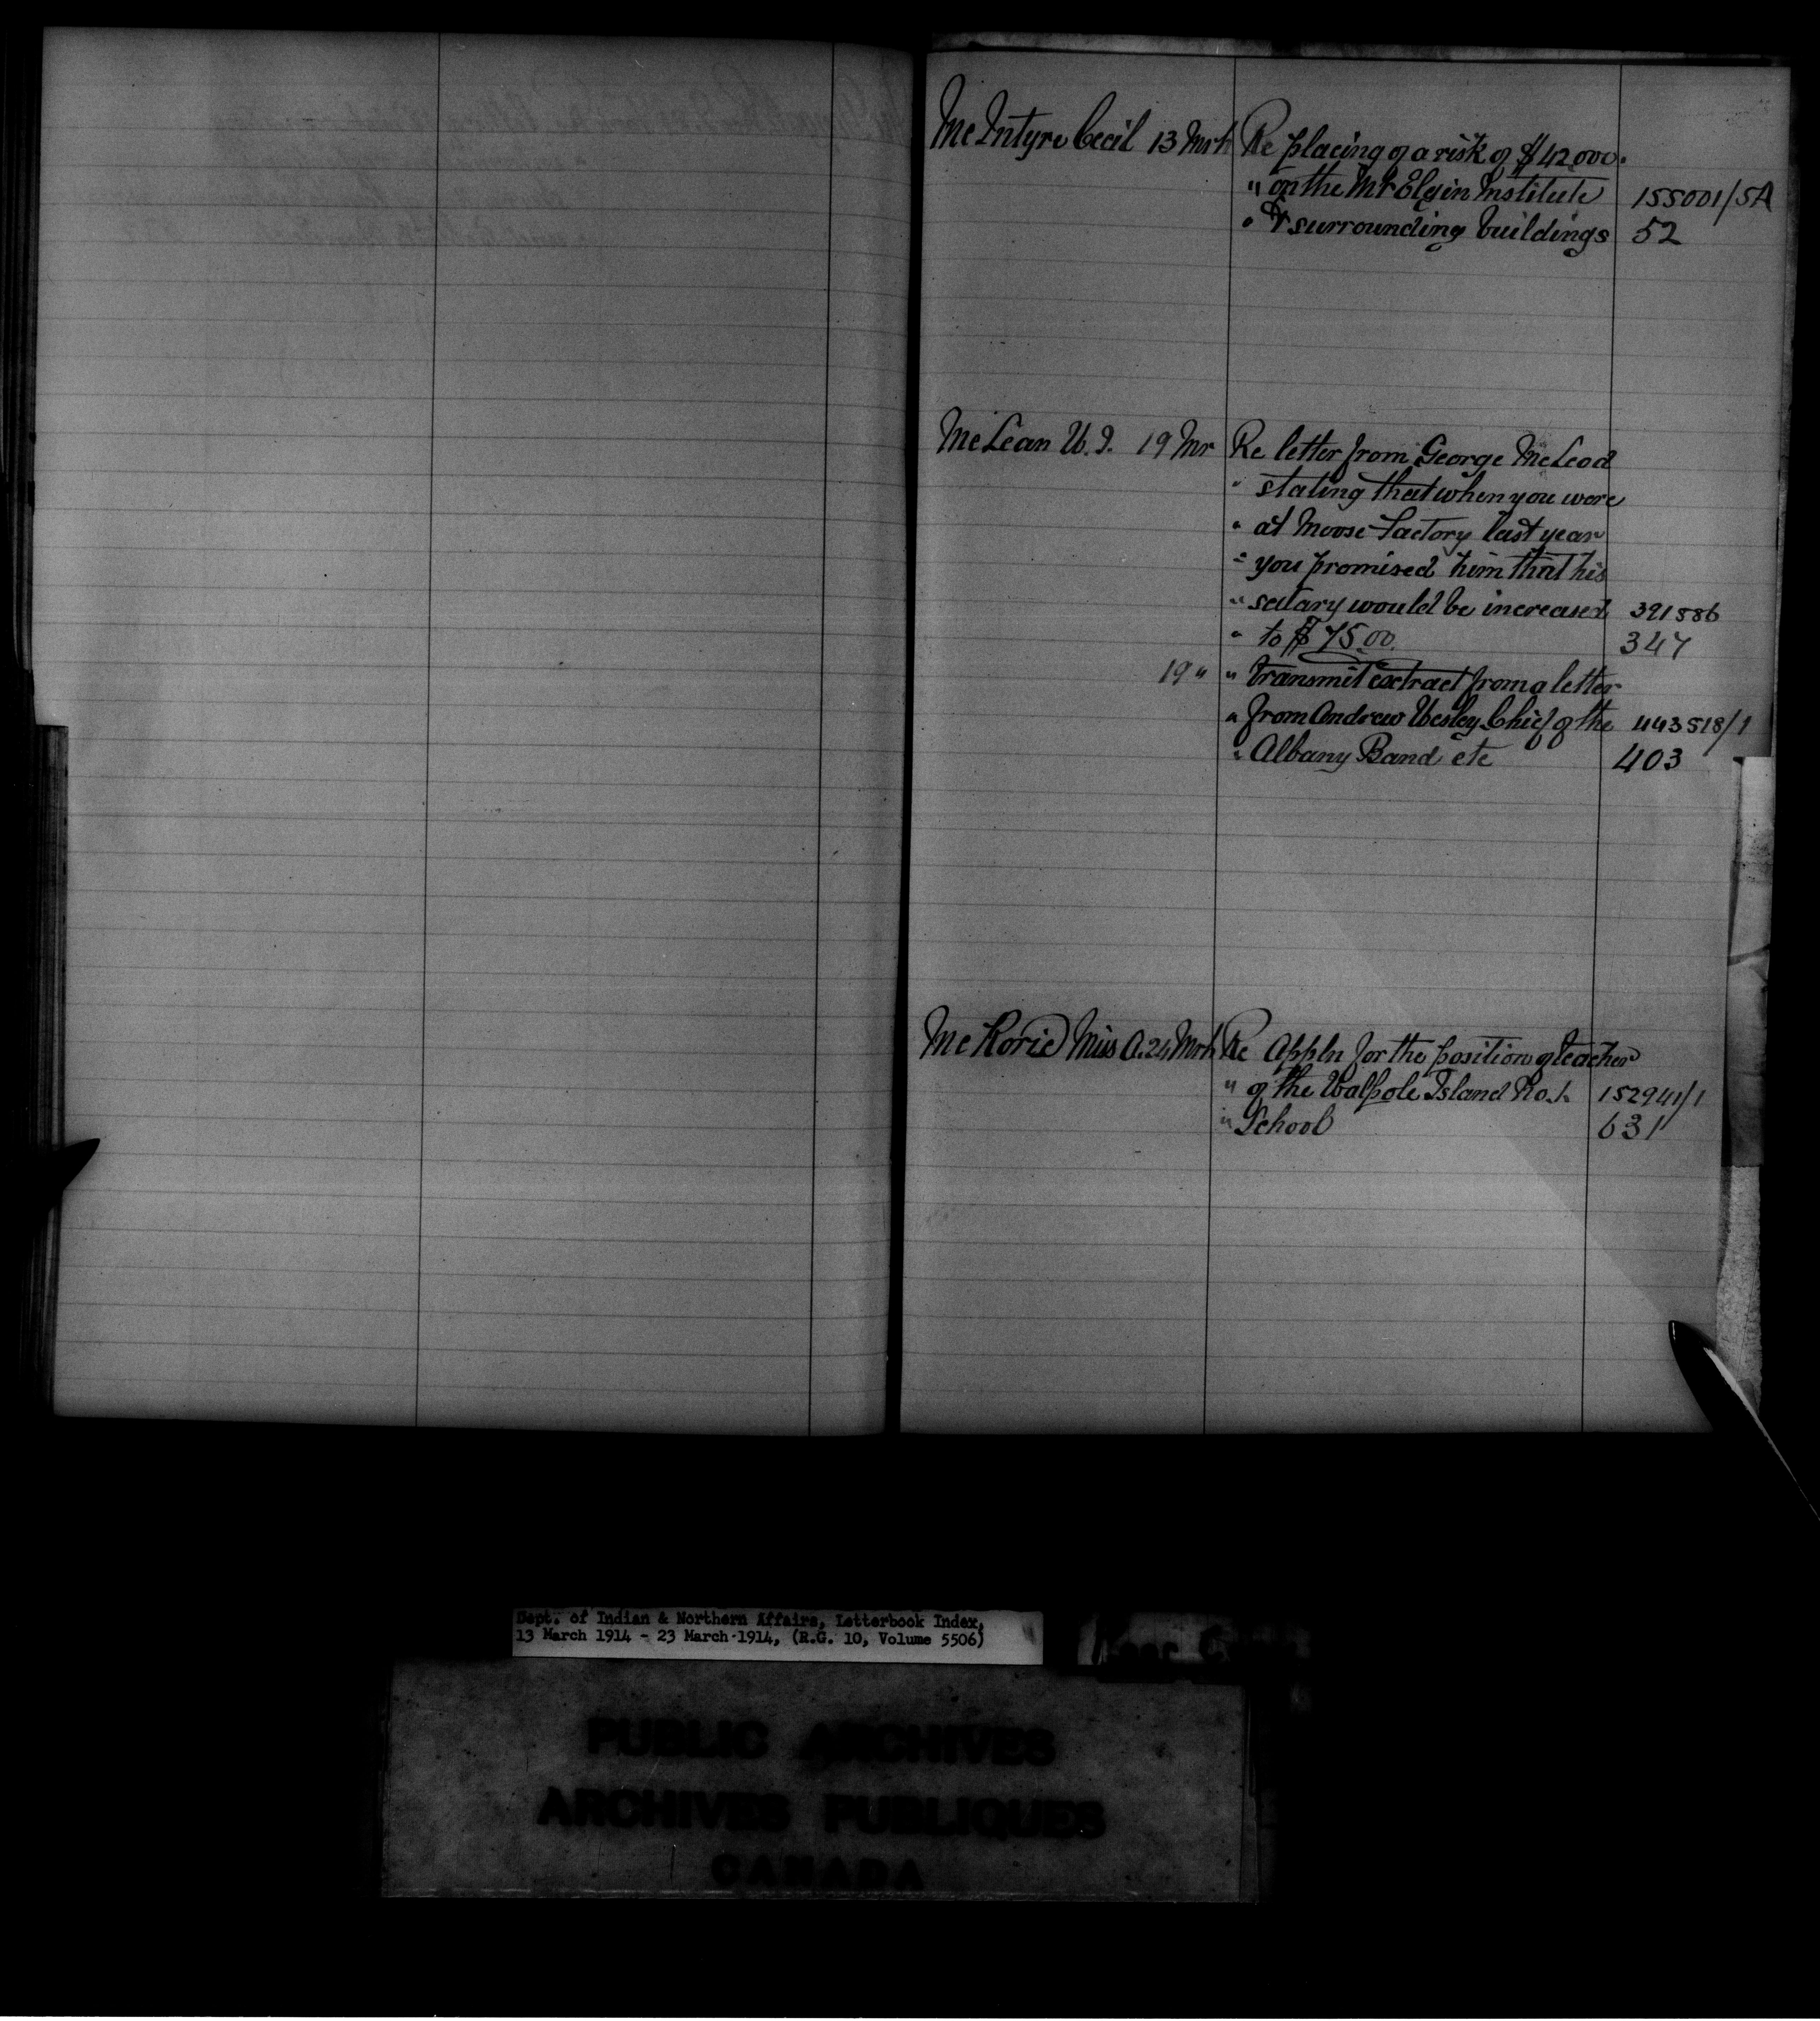 McIntyre Cecil 13 Mrh Re placing of a risk of $42,000.
" on the Mt Elgin Institute 155001/5A
" & surrounding buildings 52
McLean W.J. 19 Mr Re letter from George McLeod
" stating that when you were
" at Moose Factory last year
" you promised him that his
" salary would be increased 391886
" to $75.00. 347
19 " " transmit extract from a letter
" from Andrew Wesley Chief of the 443518/1
" Albany Band etc 403
McRorie Miss A. 24 Mrh Re Appln for the position of teacher
" of the Walpole Island No. 1. 152941/1
" School 631
Dept. of Indian & Northern Affairs, Letterbook Index,
13 March 1914 - 23 March 1914, (R.G. 10, Volume 5506)
PUBLIC ARCHIVES
ARCHIVES PUBLIQUES
CANADA